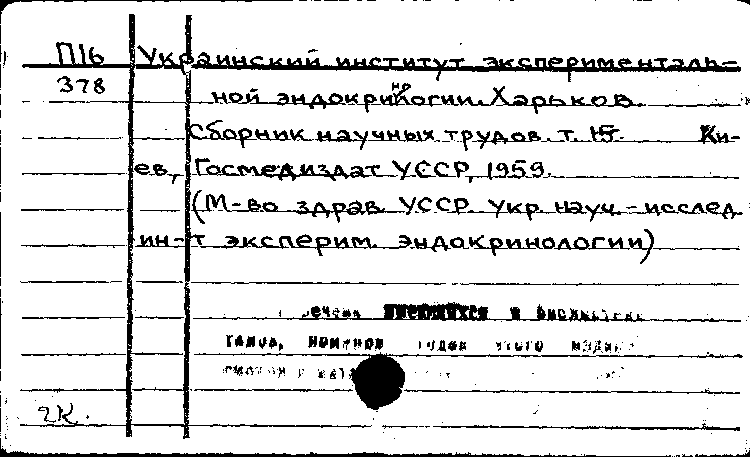 П16 Украинский институт эксперименталь-
378 ной эндокринологии. Харьков.
Сборник научных трудов. т. 15. Ки-
ев, Госмедиздат УССР, 1959.
(М-во здрав. УССР. Укр. науч.-исслед.
ин-т эксперим. эндокринологии)
имеющихся в
томов,
2К.